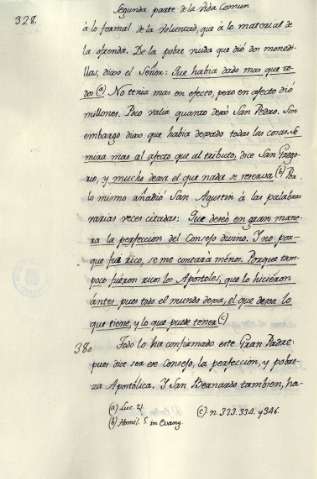 328.
Segunda parte de la Vida Comun
à lo formal de la voluntad, que à lo material de
la ofrenda. De la pobre viuda que diò dos monedi-
llas, dixo el Señor: Que habia dado mas que to-
dos (a). No tenia mas en efecto, pero en afecto diò
millones. Poco valia quanto dexò San Pedro. Sin
embargo dixo que habia dexado todas las cosas. Se
mira mas al afecto que al tributo, dice San Grego-
rio, y mucho dexa el que nada se reserva (b). Por
lo mismo añadiò San Agustin à las palabras
varias veces citadas: Que deseò en gran mane-
ra la perfeccion del Consejo divino. Y no por-
que fuì rico, se me contarà mènos. Porque tam-
poco fuèron ricos los Apòstoles, que lo hicièron
àntes; pues todo el mundo dexa, el que dexa lo
que tiene, y lo que puede tener (c)
38. Todo lo ha confirmado este Gran Padre:
pues dice ser en Consejo, la perfeccion, y pobre-
za Apostòlica. Y San Bernardo tambien, ha-
(a) Luc. 21.
(b) Homil. 5 in Evang.
(c) n. 323. 334. y 346.